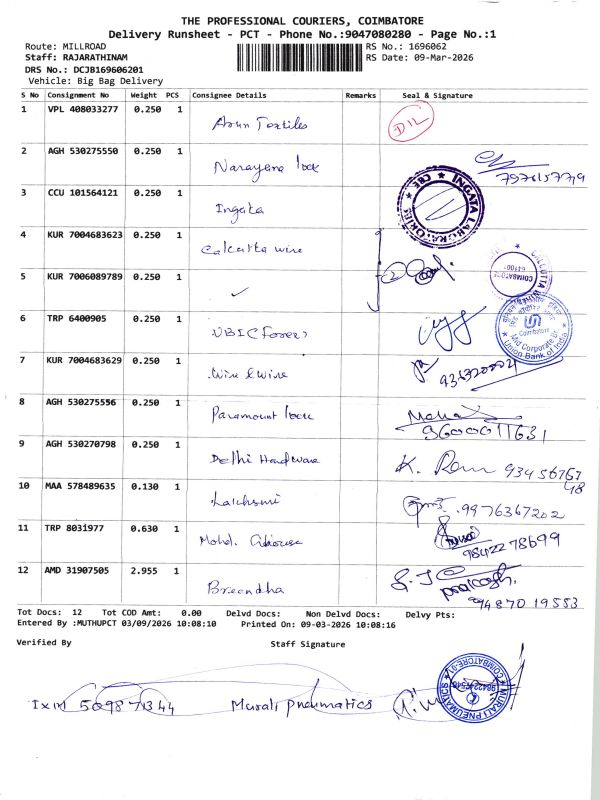 THE PROFESSIONAL COURIERS, COIMBATORE
Delivery Runsheet - PCT - Phone No.:9047080280 - Page No.:1
Route: MILLROAD
RS No.: 1696062
Staff: RAJARATHINAM
RS Date: 09-Mar-2026
DRS No.: DCJB169606201
Vehicle: Big Bag Delivery
S No Consignment No Weight PCS Consignee Details Remarks Seal & Signature
1 VPL 408033277 0.250 1 Arun Textiles DIL
2 AGH 530275550 0.250 1 Narayana lock
3 CCU 101564121 0.250 1 Ingata INGATA CBE
4 KUR 7004683623 0.250 1 Calcutta wire
5 KUR 7006089789 0.250 1 ✓ COIMBATORE
6 TRP 6400905 0.250 1 Coimbatore Mid Corporate Br. Union Bank of India
7 KUR 7004683629 0.250 1 Wire & Wire
8 AGH 530275556 0.250 1 Paramount lock 9600011631
9 AGH 530270798 0.250 1 Delhi Hardware K. Ram 93456767 48
10 MAA 578489635 0.130 1 Lakhsmi 9976367202
11 TRP 8031977 0.630 1 Mohd. 9842278699
12 AMD 31907505 2.955 1 Breendha 94870 19553
Tot Docs: 12 Tot COD Amt: 0.00 Delvd Docs: Non Delvd Docs: Delvy Pts:
Entered By :MUTHUPCT 03/09/2026 10:08:10 Printed On: 09-03-2026 10:08:16
Verified By Staff Signature
509871344 Murali Pneumatics MURALI PNEUMATICS COIMBATORE